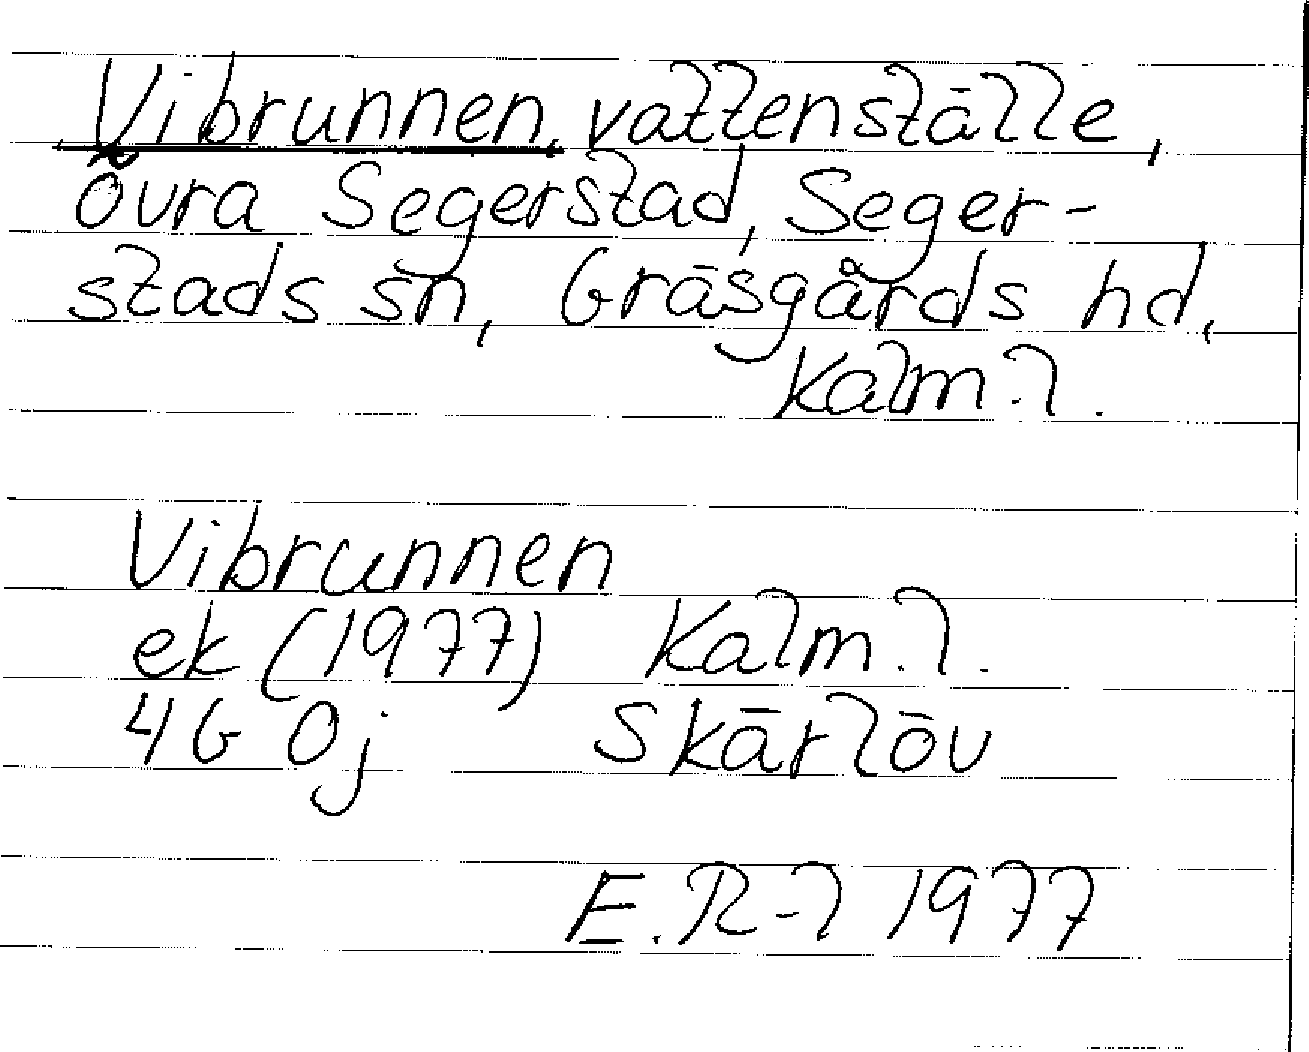 Vibrunnen, vattenställe,
Övra Segerstad, Seger-
stads sn, Gräsgårds hd,
Kalm. l.
Vibrunnen
ek (1977) Kalm. l.
4G 0j Skärlöv
E. R-l 1977